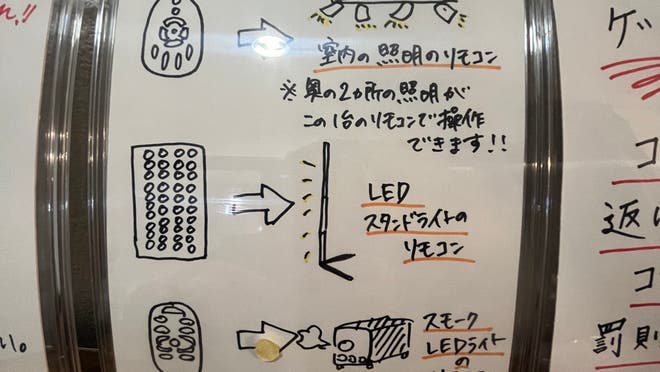 室内の照明のリモコン
※奥の2カ所の照明が
この1台のリモコンで操作
できます!!
LED
スタンドライトの
リモコン
スモーク
LEDライト
の
ゲッ
コ
返
コ
罰則